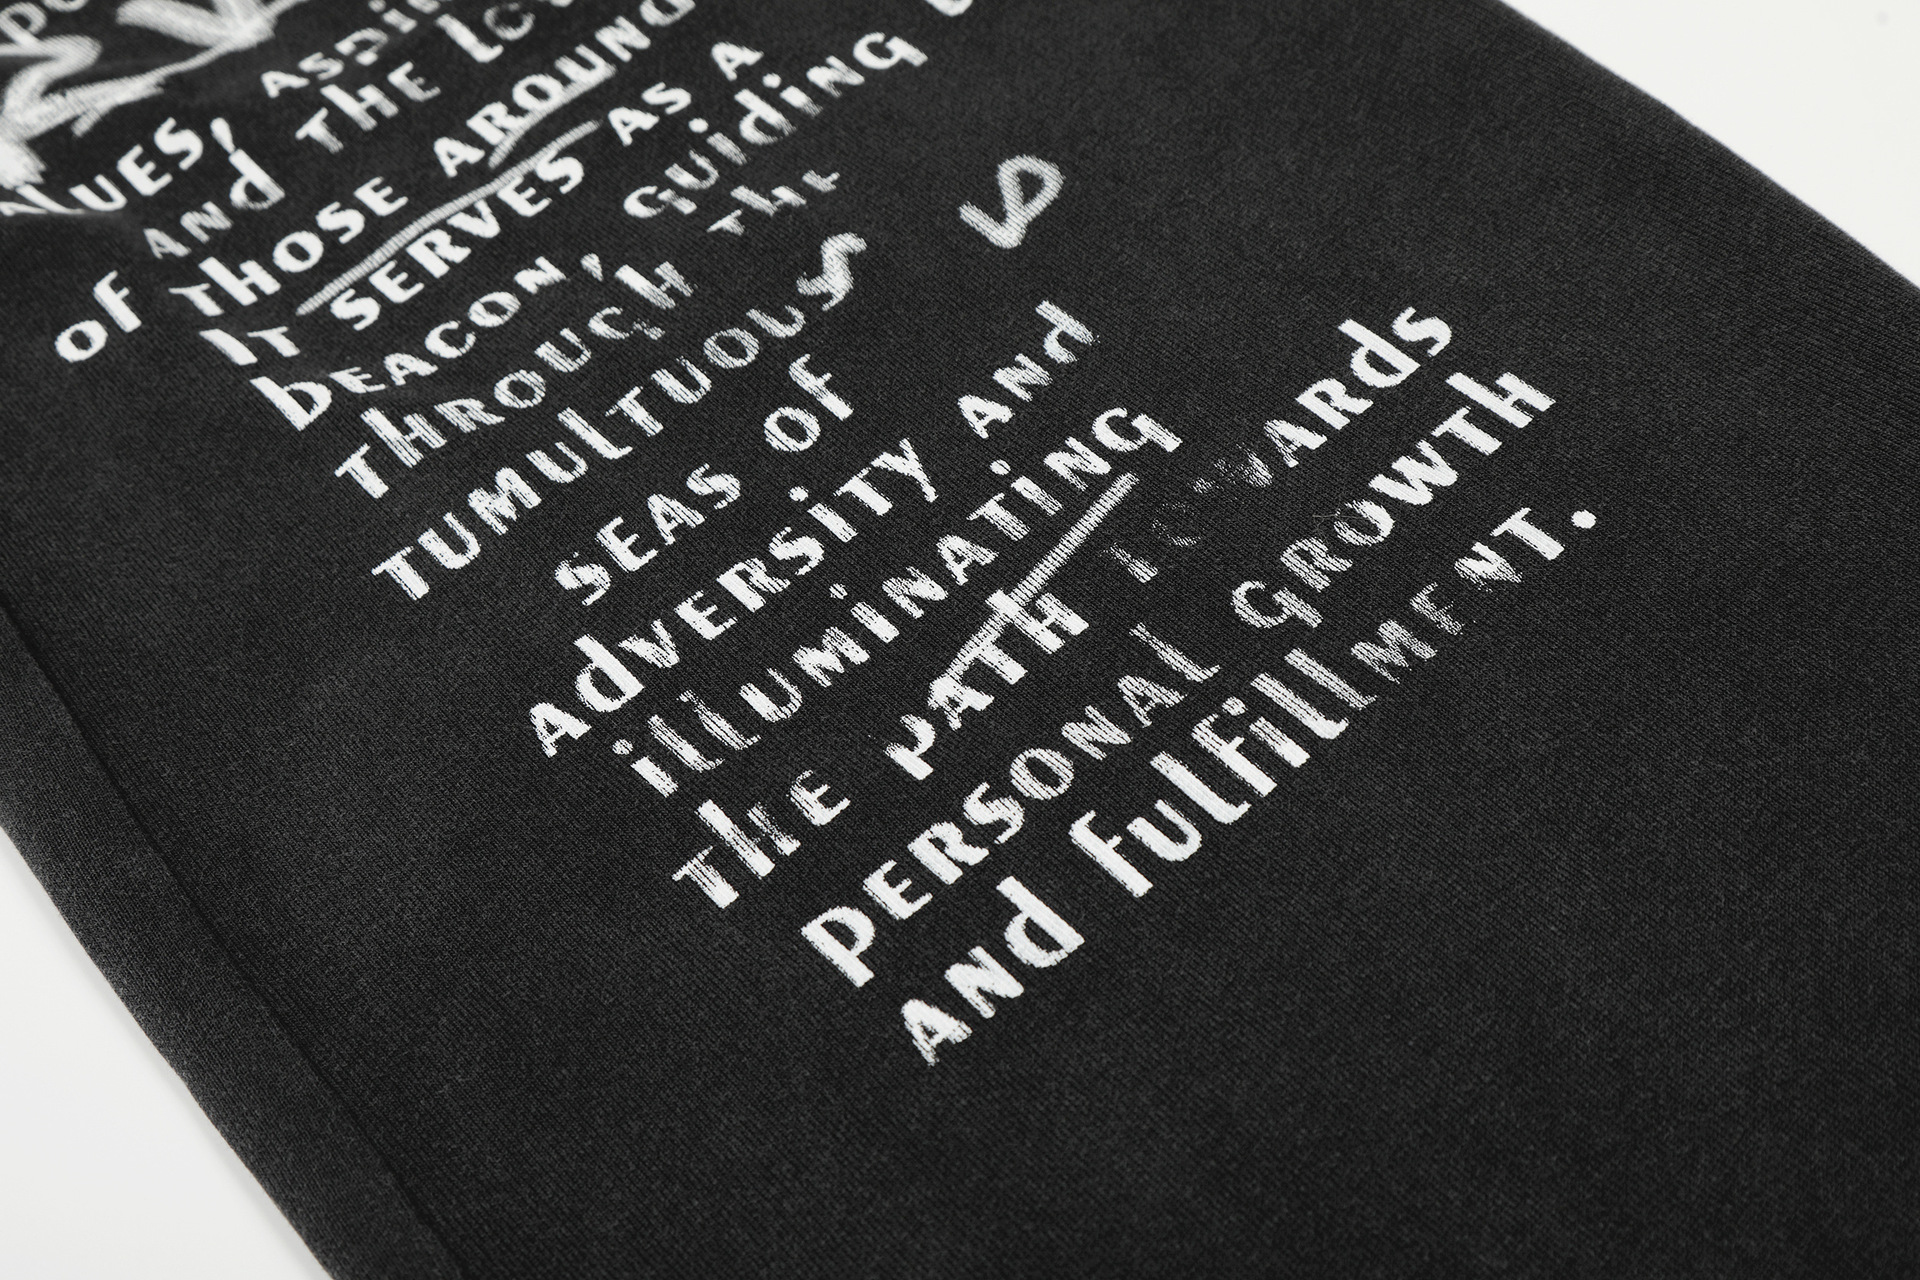 AND THE
OF THOSE AROUND
IT SERVES AS A
bEACON, GUidiNG
ThROUGh The
TUMUlTUOUS
SEAS OF
AdVERSiTY ANd
illUMiNATiNG
ThE PATH TOWARds
PERSONAL GROWTH
ANd FulfillMENT.